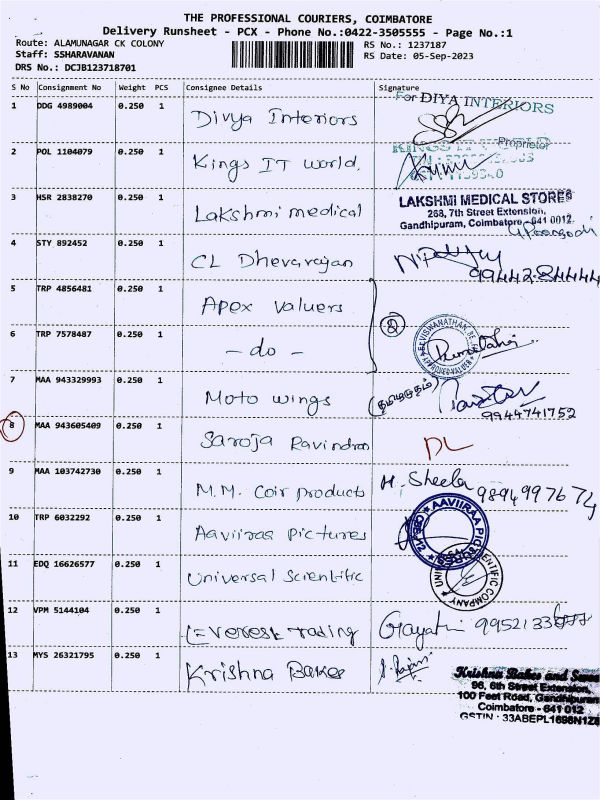 THE PROFESSIONAL COURIERS, COIMBATORE
Delivery Runsheet - PCX - Phone No.:0422-3505555 - Page No.:1
Route: ALAMUNAGAR CK COLONY
RS No.: 1237187
Staff: SSHARAVANAN
RS Date: 05-Sep-2023
DRS No.: DCJB123718701
S No Consignment No Weight PCS Consignee Details Signature
1 DDG 4989004 0.250 1 Divya Interiors
For DIYA INTERIORS
Proprietor
2 POL 1104079 0.250 1 Kings IT world.
3 HSR 2838270 0.250 1 Lakshmi medical
LAKSHMI MEDICAL STORES
268, 7th Street Extension,
Gandhipuram, Coimbatore - 641 0012.
4 STY 892452 0.250 1 CL Dhevarajan
99442-84444
5 TRP 4856481 0.250 1 Apex Valuers
6 TRP 7578487 0.250 1 - do -
APPROVED VALUER
7 MAA 943329993 0.250 1 Moto wings
9944741752
8 MAA 943605409 0.250 1 Saroja Ravindran DL
9 MAA 103742730 0.250 1 M.M. Coir products H. Sheela
10 TRP 6032292 0.250 1 Aaviiraa Pictures
AAVIIRAA PICTURES
11 EDQ 16626577 0.250 1 Universal Scientific
12 VPM 5144104 0.250 1 Everest trading Gayatri
13 MYS 26321795 0.250 1 Krishna Bakes
Krishna Bakes and
96, 6th Street Extension,
100 Feet Road, Gandhipuram
Coimbatore - 641 012
GSTIN : 33ABEPL1698N1Z8